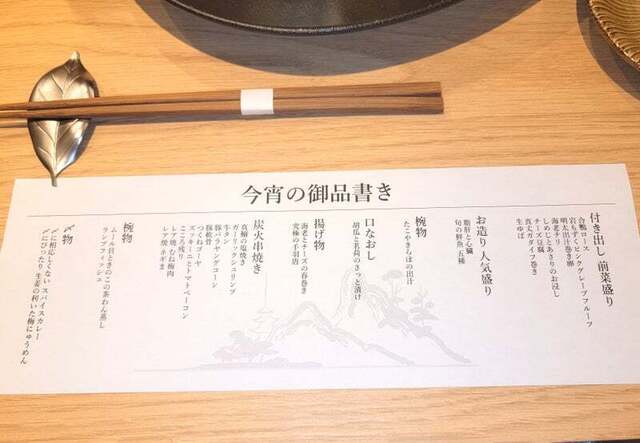 今宵の御品書き
付き出し 前菜盛り
合鴨ロース
岩もずくピンクグレープフルーツ
明太出汁巻き卵
海老チリ
しめじとあさりのお浸し
チーズ豆腐
真丈ガダイフ巻き
生ゆば
お造り 人気盛り
脂肝と心臓
旬の鮮魚 五種
椀物
たこやきらほの出汁
口なおし
胡瓜と茗荷のさっと漬け
揚げ物
海老とチーズの春巻き
究極の手羽唐
炭火串焼き
真鯛の塩焼き
ガーリックシュリンプ
牛タン
豚バラヤングコーン
豚軟骨
つくねゴーヤ
ズッキーニとトマトベーコン
こころ残り
レア焼 むね梅肉
レア焼 ネギま
椀物
ムール貝ときのこの茶わん蒸し
ランプフィッシュ
〆物
〆に相応しくない スパイスカレー
〆にぴったり 生姜の利いた梅にゅうめん